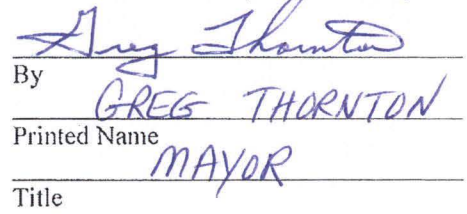 Greg Thornton
By
GREG THORNTON
Printed Name
MAYOR
Title